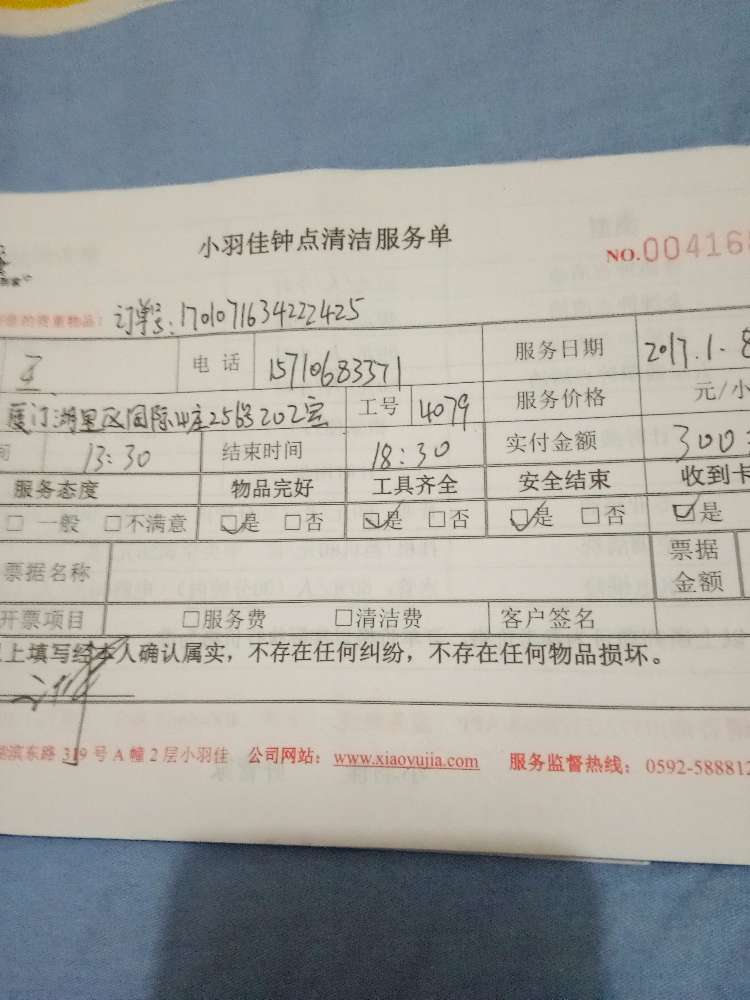 小羽佳钟点清洁服务单
NO.004168
的贵重物品： 订单号：1701071634222425
电话 15710683371 服务日期 2017.1.8
厦门湖里区国际山庄256号202室 工号 4079 服务价格 元/小
间 13:30 结束时间 18:30 实付金额 300
服务态度 物品完好 工具齐全 安全结束 收到卡
□ 一般 □不满意 ☑是 □否 ☑是 □否 ☑是 □否 ☑是
票据名称 票据金额
开票项目 □服务费 □清洁费 客户签名
上填写经本人确认属实，不存在任何纠纷，不存在任何物品损坏。
滨东路 319 号 A 幢 2 层小羽佳 公司网站：www.xiaoyujia.com 服务监督热线：0592-588812